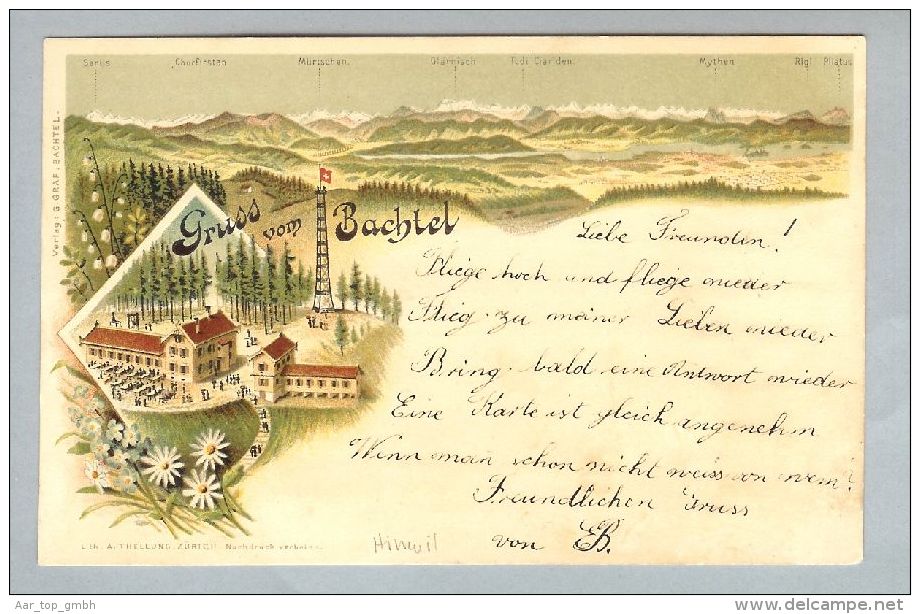 Säntis Churfirsten Mürtschen. Glärnisch Tödi Clariden. Mythen Rigi Pilatus
Verlag: G. GRAF, BACHTEL.
Gruss vom Bachtel
Liebe Freundin!
Fliege hoch und fliege nieder
Flieg zu meiner Lieben nieder
Bring bald eine Antwort wieder
Eine Karte ist gleich angenehm
Wenn man schon nicht weiss von wem!
Freundlichen Gruss
von EB.
Hinwil
LITH. A. THELLUNG, ZÜRICH. Nachdruck verboten.
Aar_top_gmbh
delcampe.net